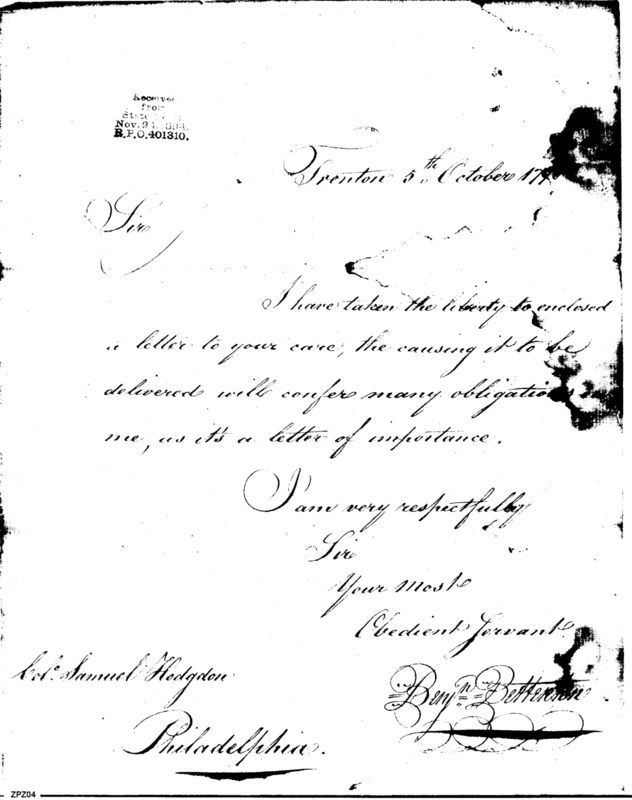 Received
from
State
Nov. 24, 1894.
R.P.O. 401310.
Trenton 5th October 179
Sir
I have taken the liberty to enclosed
a letter to your care, the causing it to be
delivered will confer many obligations
me, as it's a letter of importance.
I am very respectfully
Sir
Your Most
Obedient Servant
Colo. Samuel Hodgdon
Benjn Betterton
Philadelphia.
ZPZ04